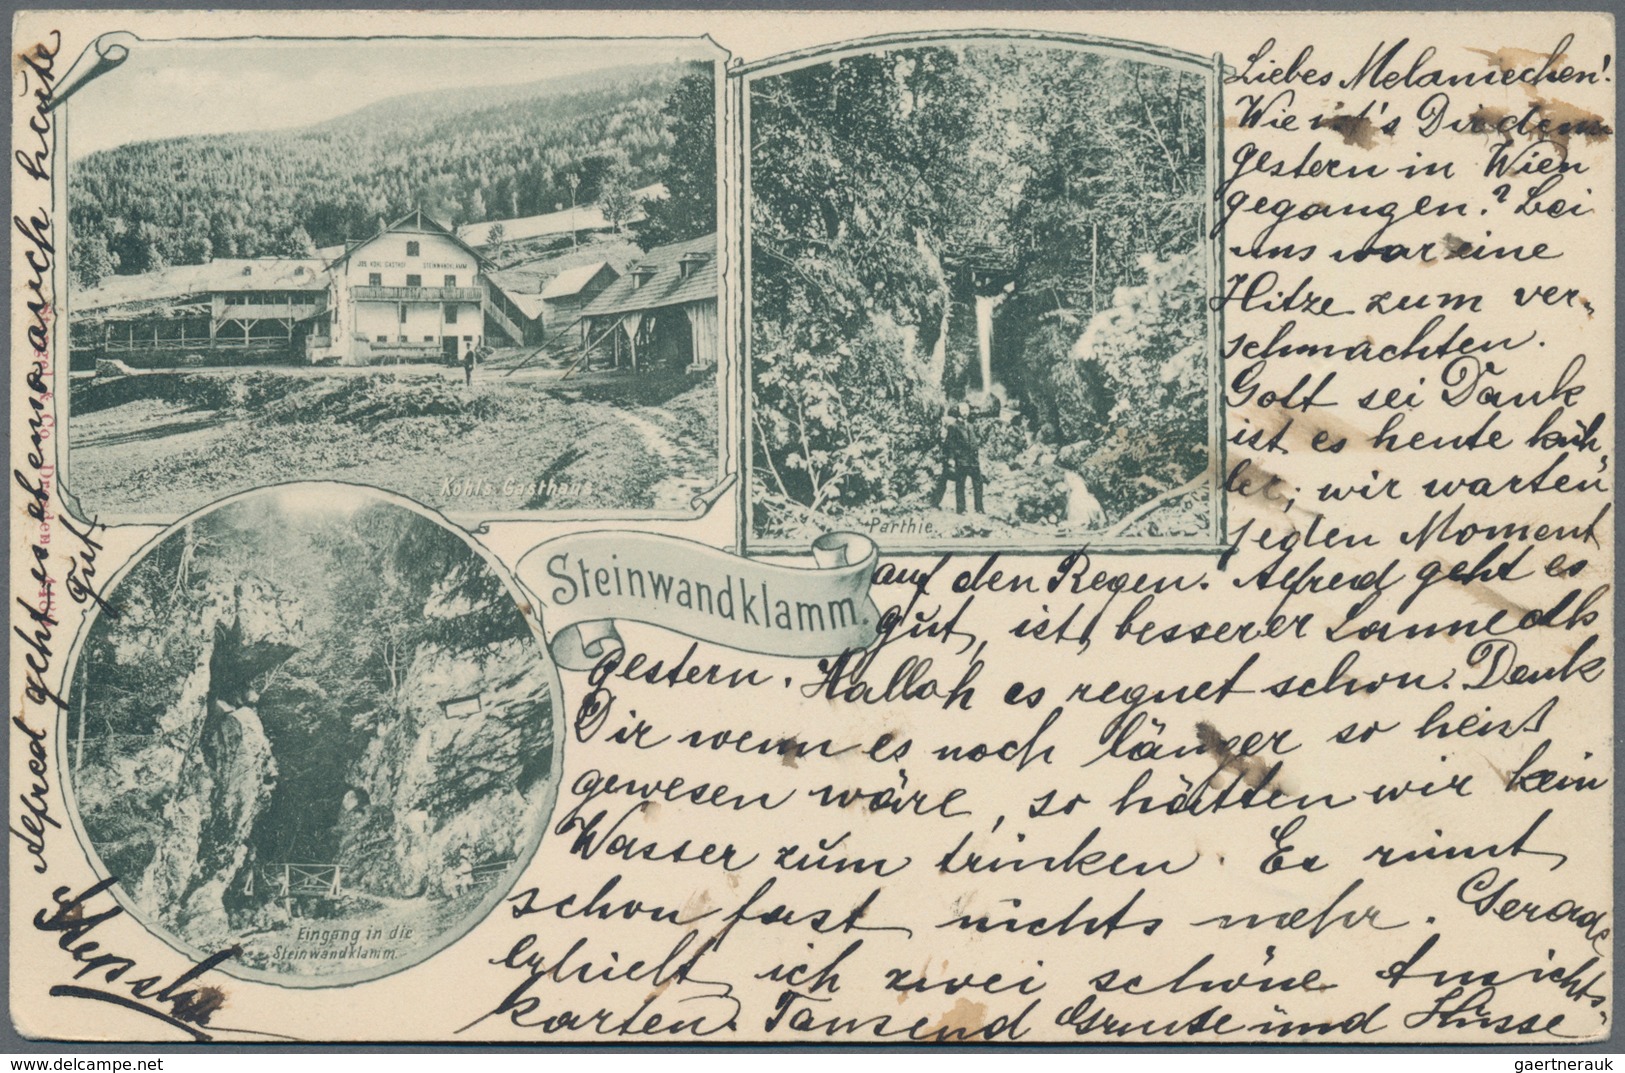 JOS. KOHL GASTHOF STEINWANDKLAMM
Kohls Gasthaus
Parthie.
Steinwandklamm.
Eingang in die
Steinwandklamm.
Liebes Melaniechen!
Wie ist's Dir denn
gestern in Wien
gegangen? Bei
uns war eine
Hitze zum ver-
schmachten.
Gott sei Dank
ist es heute küh-
ler; wir warten
jeden Moment
auf den Regen. Alfred geht es
gut, ist besserer Laune als
gestern. Halloh es regnet schon. Denk
Dir wenn es noch länger so heiß
gewesen wäre, so hätten wir kein
Wasser zum trinken. Es rinnt
schon fast nichts mehr. Gerade
erhielt ich zwei schöne Ansichts-
karten. Tausend Grüße und Küsse
Alfred geht es ebenso auch heute
gut.
Stengel & Co., Dresden
gaertnerauk @ delcampe.net